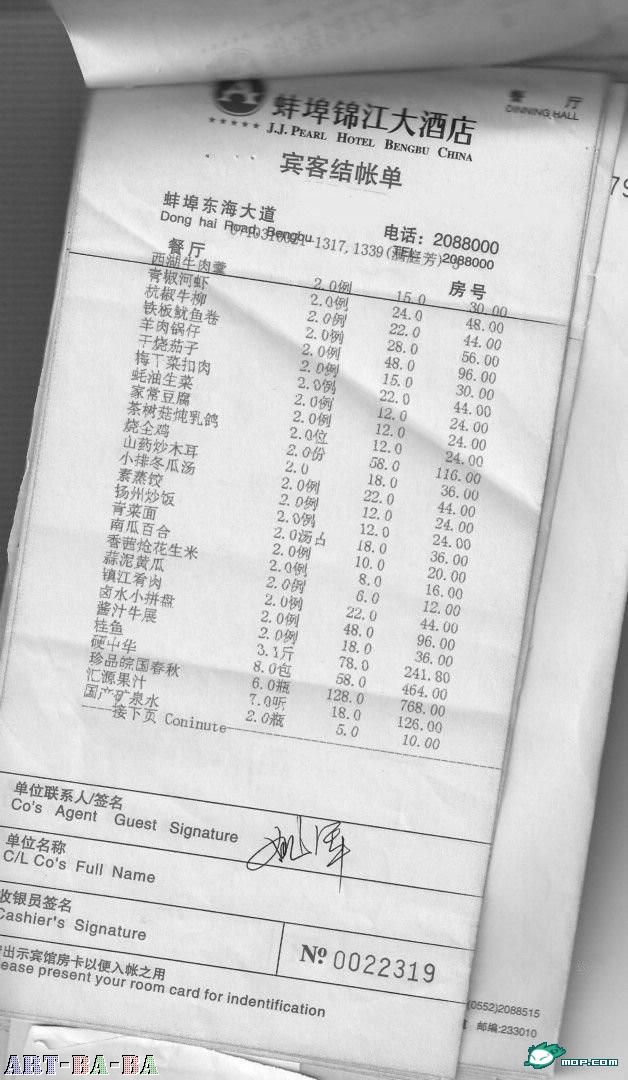 餐 厅
DINNING HALL
蚌埠锦江大酒店
J.J. PEARL HOTEL BENGBU CHINA
宾客结帐单
蚌埠东海大道 电话：2088000
Dong hai Road, Bengbu TEL: 2088000
-1317,1339
餐厅 房号
西湖牛肉羹 2.0例 15.0 30.00
青椒河虾 2.0例 24.0 48.00
杭椒牛柳 2.0例 22.0 44.00
铁板鱿鱼卷 2.0例 28.0 56.00
羊肉锅仔 2.0例 48.0 96.00
干烧茄子 2.0例 15.0 30.00
梅丁菜扣肉 2.0例 22.0 44.00
蚝油生菜 2.0例 12.0 24.00
家常豆腐 2.0例 12.0 24.00
茶树菇炖乳鸽 2.0位 12.0 24.00
烧全鸡 2.0份 58.0 116.00
山药炒木耳 2.0 18.0 36.00
小排冬瓜汤 2.0例 22.0 44.00
素蒸饺 2.0例 12.0 24.00
扬州炒饭 2.0例 12.0 24.00
青菜面 2.0汤占 18.0 36.00
南瓜百合 2.0例 10.0 20.00
香茜炝花生米 2.0例 8.0 16.00
蒜泥黄瓜 2.0例 6.0 12.00
镇江肴肉 2.0例 22.0 44.00
卤水小拼盘 2.0例 48.0 96.00
酱汁牛展 2.0例 18.0 36.00
桂鱼 3.1斤 78.0 241.80
硬中华 8.0包 58.0 464.00
珍品皖国春秋 6.0瓶 128.0 768.00
汇源果汁 7.0听 18.0 126.00
国产矿泉水 2.0瓶 5.0 10.00
接下页 Coninute
单位联系人/签名
Co's Agent Guest Signature
单位名称
C/L Co's Full Name
收银员签名
Cashier's Signature
出示宾馆房卡以便入帐之用
ease present your room card for indentification
№ 0022319
(0552)2088515
邮编:233010
ART-BA-BA
mop.com